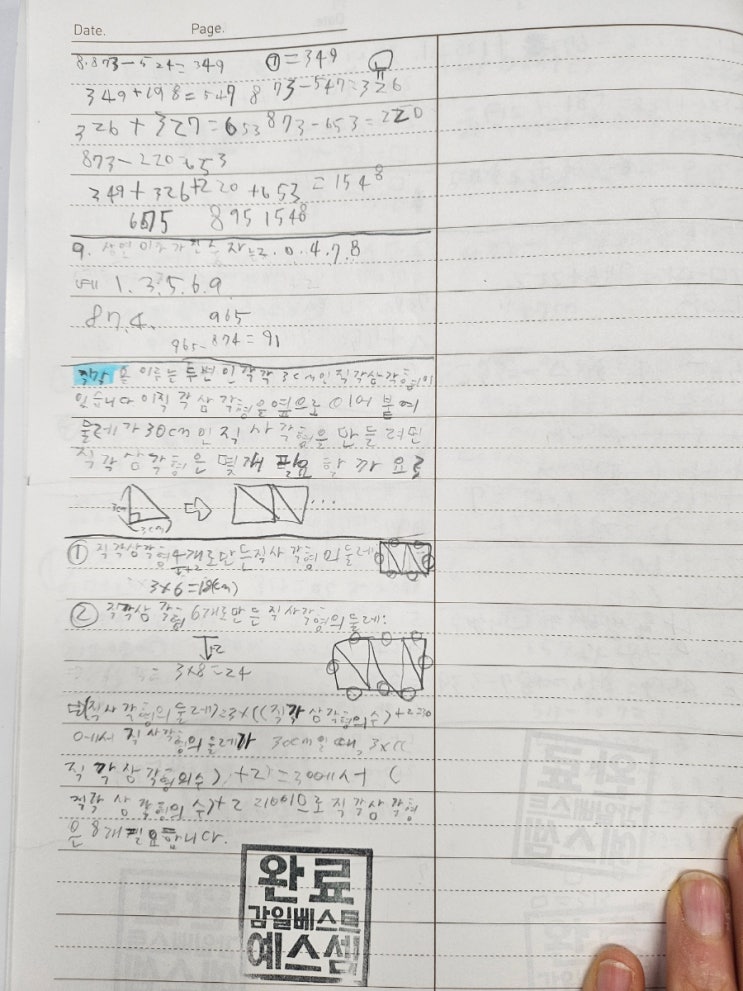 Date. Page.
8. 873-524=349 ㉠=349
349+198=547 873-547=326
326+327=653 873-653=220
873-220=653
349+326+220+653=1548
675 895 1548
9. 0.4.7.8
네 1.3.5.6.9
87.4. 965
965-874=91
직각을 이루는 두변인 각각 3cm인 직각삼각형이
있습니다 이직각삼각형을옆으로 이어 붙여
둘레가 30cm인 직사각형을 만들려면
직각삼각형은 몇개 필요할까요?
3cm
3cm
...
① 직각삼각형4개로만든직사각형의둘레
+2
3×6=18(cm)
② 직각삼각형 6개로만든 직사각형의둘레:
+2
= 3×8=24
(직사각형의둘레)=3×((직각삼각형의수)+2=30
에서 직사각형의둘레가 30cm일때, 3×((
직각삼각형의수)+2)=30에서 (
직각삼각형의수)+2 10이므로 직각삼각형
은 8개필요합니다.
완료
감일베스트
예스셈